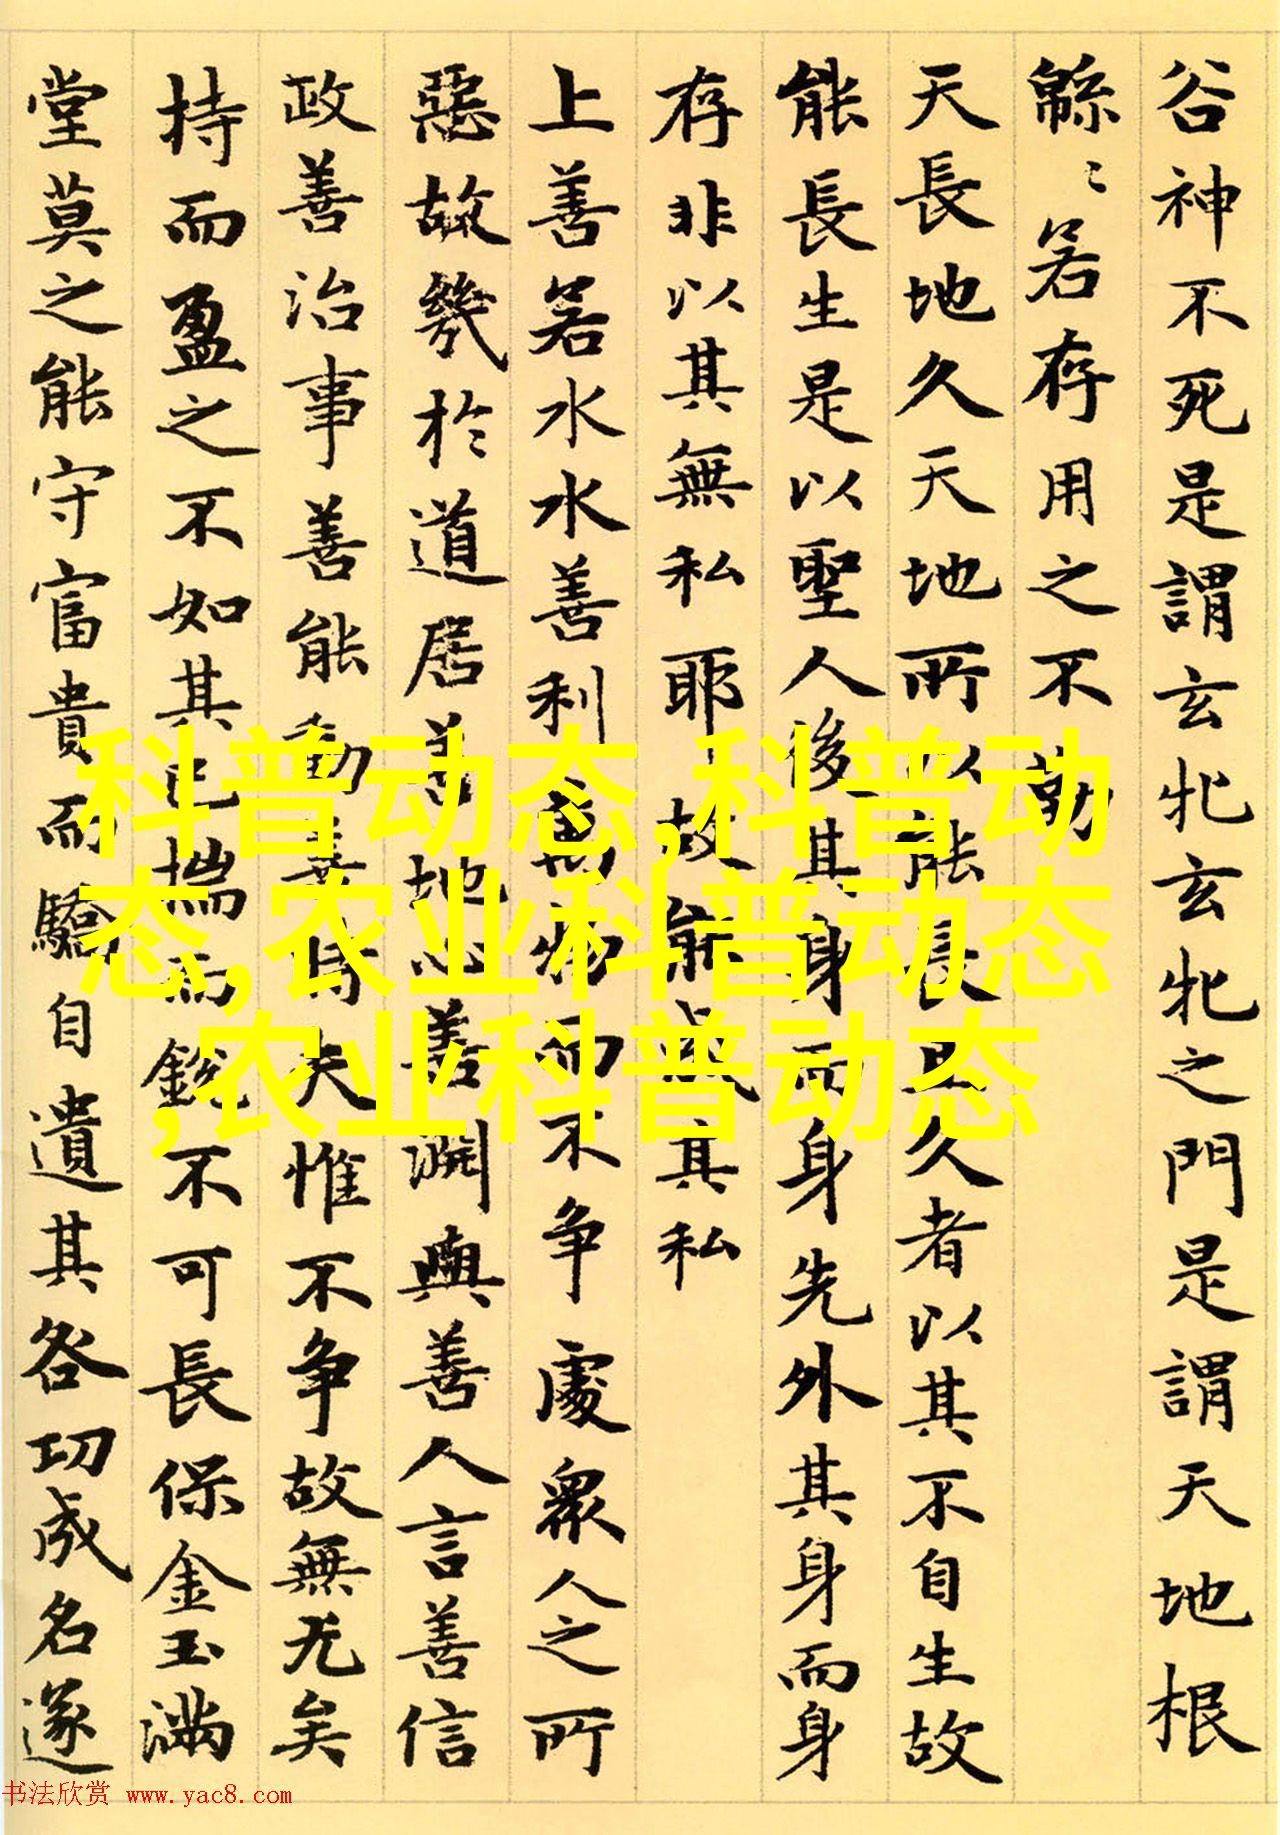 谷神不死是謂玄牝玄牝之門是謂天地根
緜〻若存用之不勤
天長地久天地所以能長且久者以其不自生故
能長生是以聖人後其身而身先外其身而身
存非以其無私耶故能成其私
上善若水水善利萬物而不争處衆人之所
惡故幾於道居善地心善淵與善人言善信
政善治事善能動善時夫惟不争故無尤矣
持而盈之不如其已揣而銳不可長保金玉滿
堂莫之能守富貴而驕自遺其咎功成名遂
科普动态,科普动
态,农业科普动态
,农业科普动态
书法欣赏 www.yac8.com